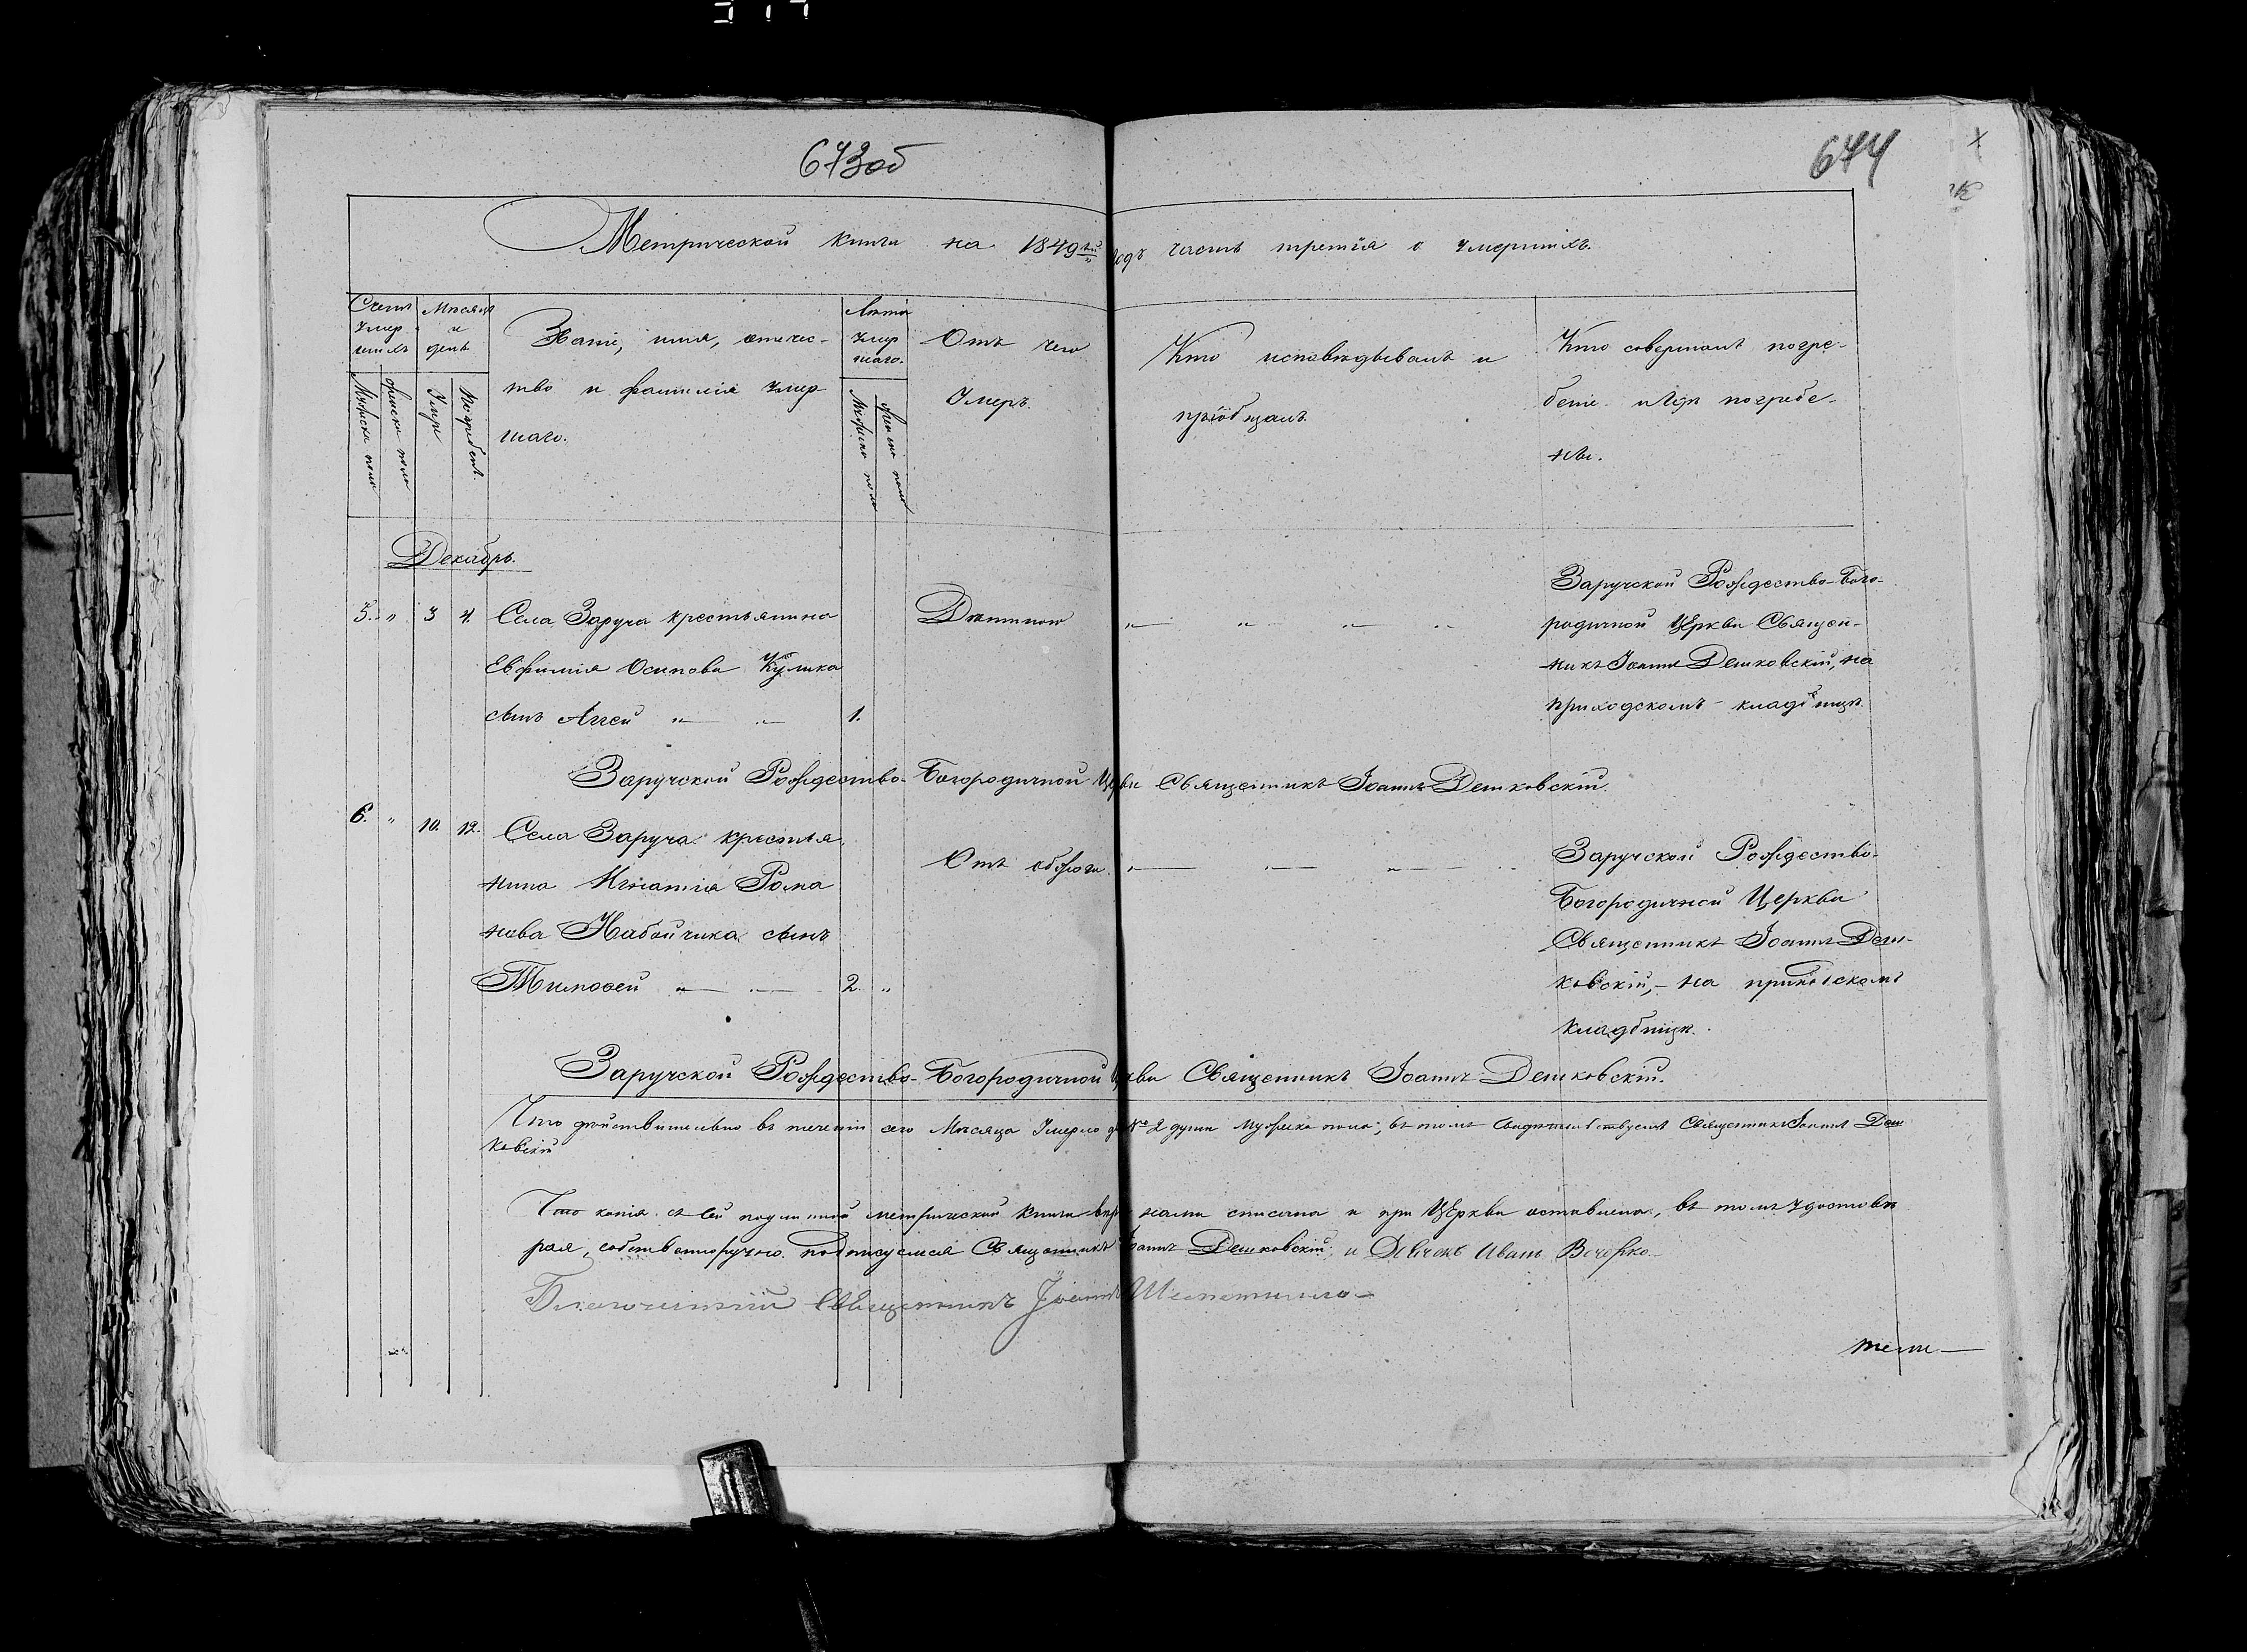 673об
674
Метрической Книги на 1849й годъ часть третія о умершихъ.
Счетъ умершихъ
Мужеска пола
Женска пола
Мѣсяцъ и день
Умеръ
Погребенъ
Званіе, имя, отечес-
тво и фамилія умер
шаго.
Лѣта умершаго.
Мужеска пола
Женска пола
Отъ чего
Умеръ.
Кто исповѣдывалъ и
пріобщалъ.
Кто совершалъ погре-
беніе и гдѣ погребе-
ны.
Декабрь.
5. " 3 4. Села Заруча крестьянина
Евфимія Осипова Кулика
сынъ Аггей " " 1.
Дѣтиною
Заручской Рождество-Бого-
родичной Церкви Священ-
никъ Іоаннъ Дешковскій, на
приходскомъ кладбищѣ.
Заручской Рождество-Богородичной Церкви Священникъ Іоаннъ Дешковскій.
6. " 10. 12. Села Заруча крестья
нина Игнатія Рома
нова Набойчика сынъ
Тимоѳей " " 2. "
Отъ обжоги.
Заручской Рождество-
Богородичной Церкви
Священникъ Іоаннъ Деш-
ковскій, на приходскомъ
кладбищѣ.
Заручской Рождество-Богородичной Церкви Священникъ Іоаннъ Дешковскій.
Что дѣйствительно въ теченіи сего Мѣсяца Умерло 2 души Мужеска пола, въ томъ свидѣтельствуетъ Священникъ Іоаннъ Деш
ковскій
Что копія съ сей подлинной метрической книги нами списана и при Церкви оставлена, въ томъ удостовѣ
ряя, собственноручно подписуемся Священникъ Іоаннъ Дешковскій, и Дьячокъ Иванъ
Благочинный Священникъ Іоаннъ